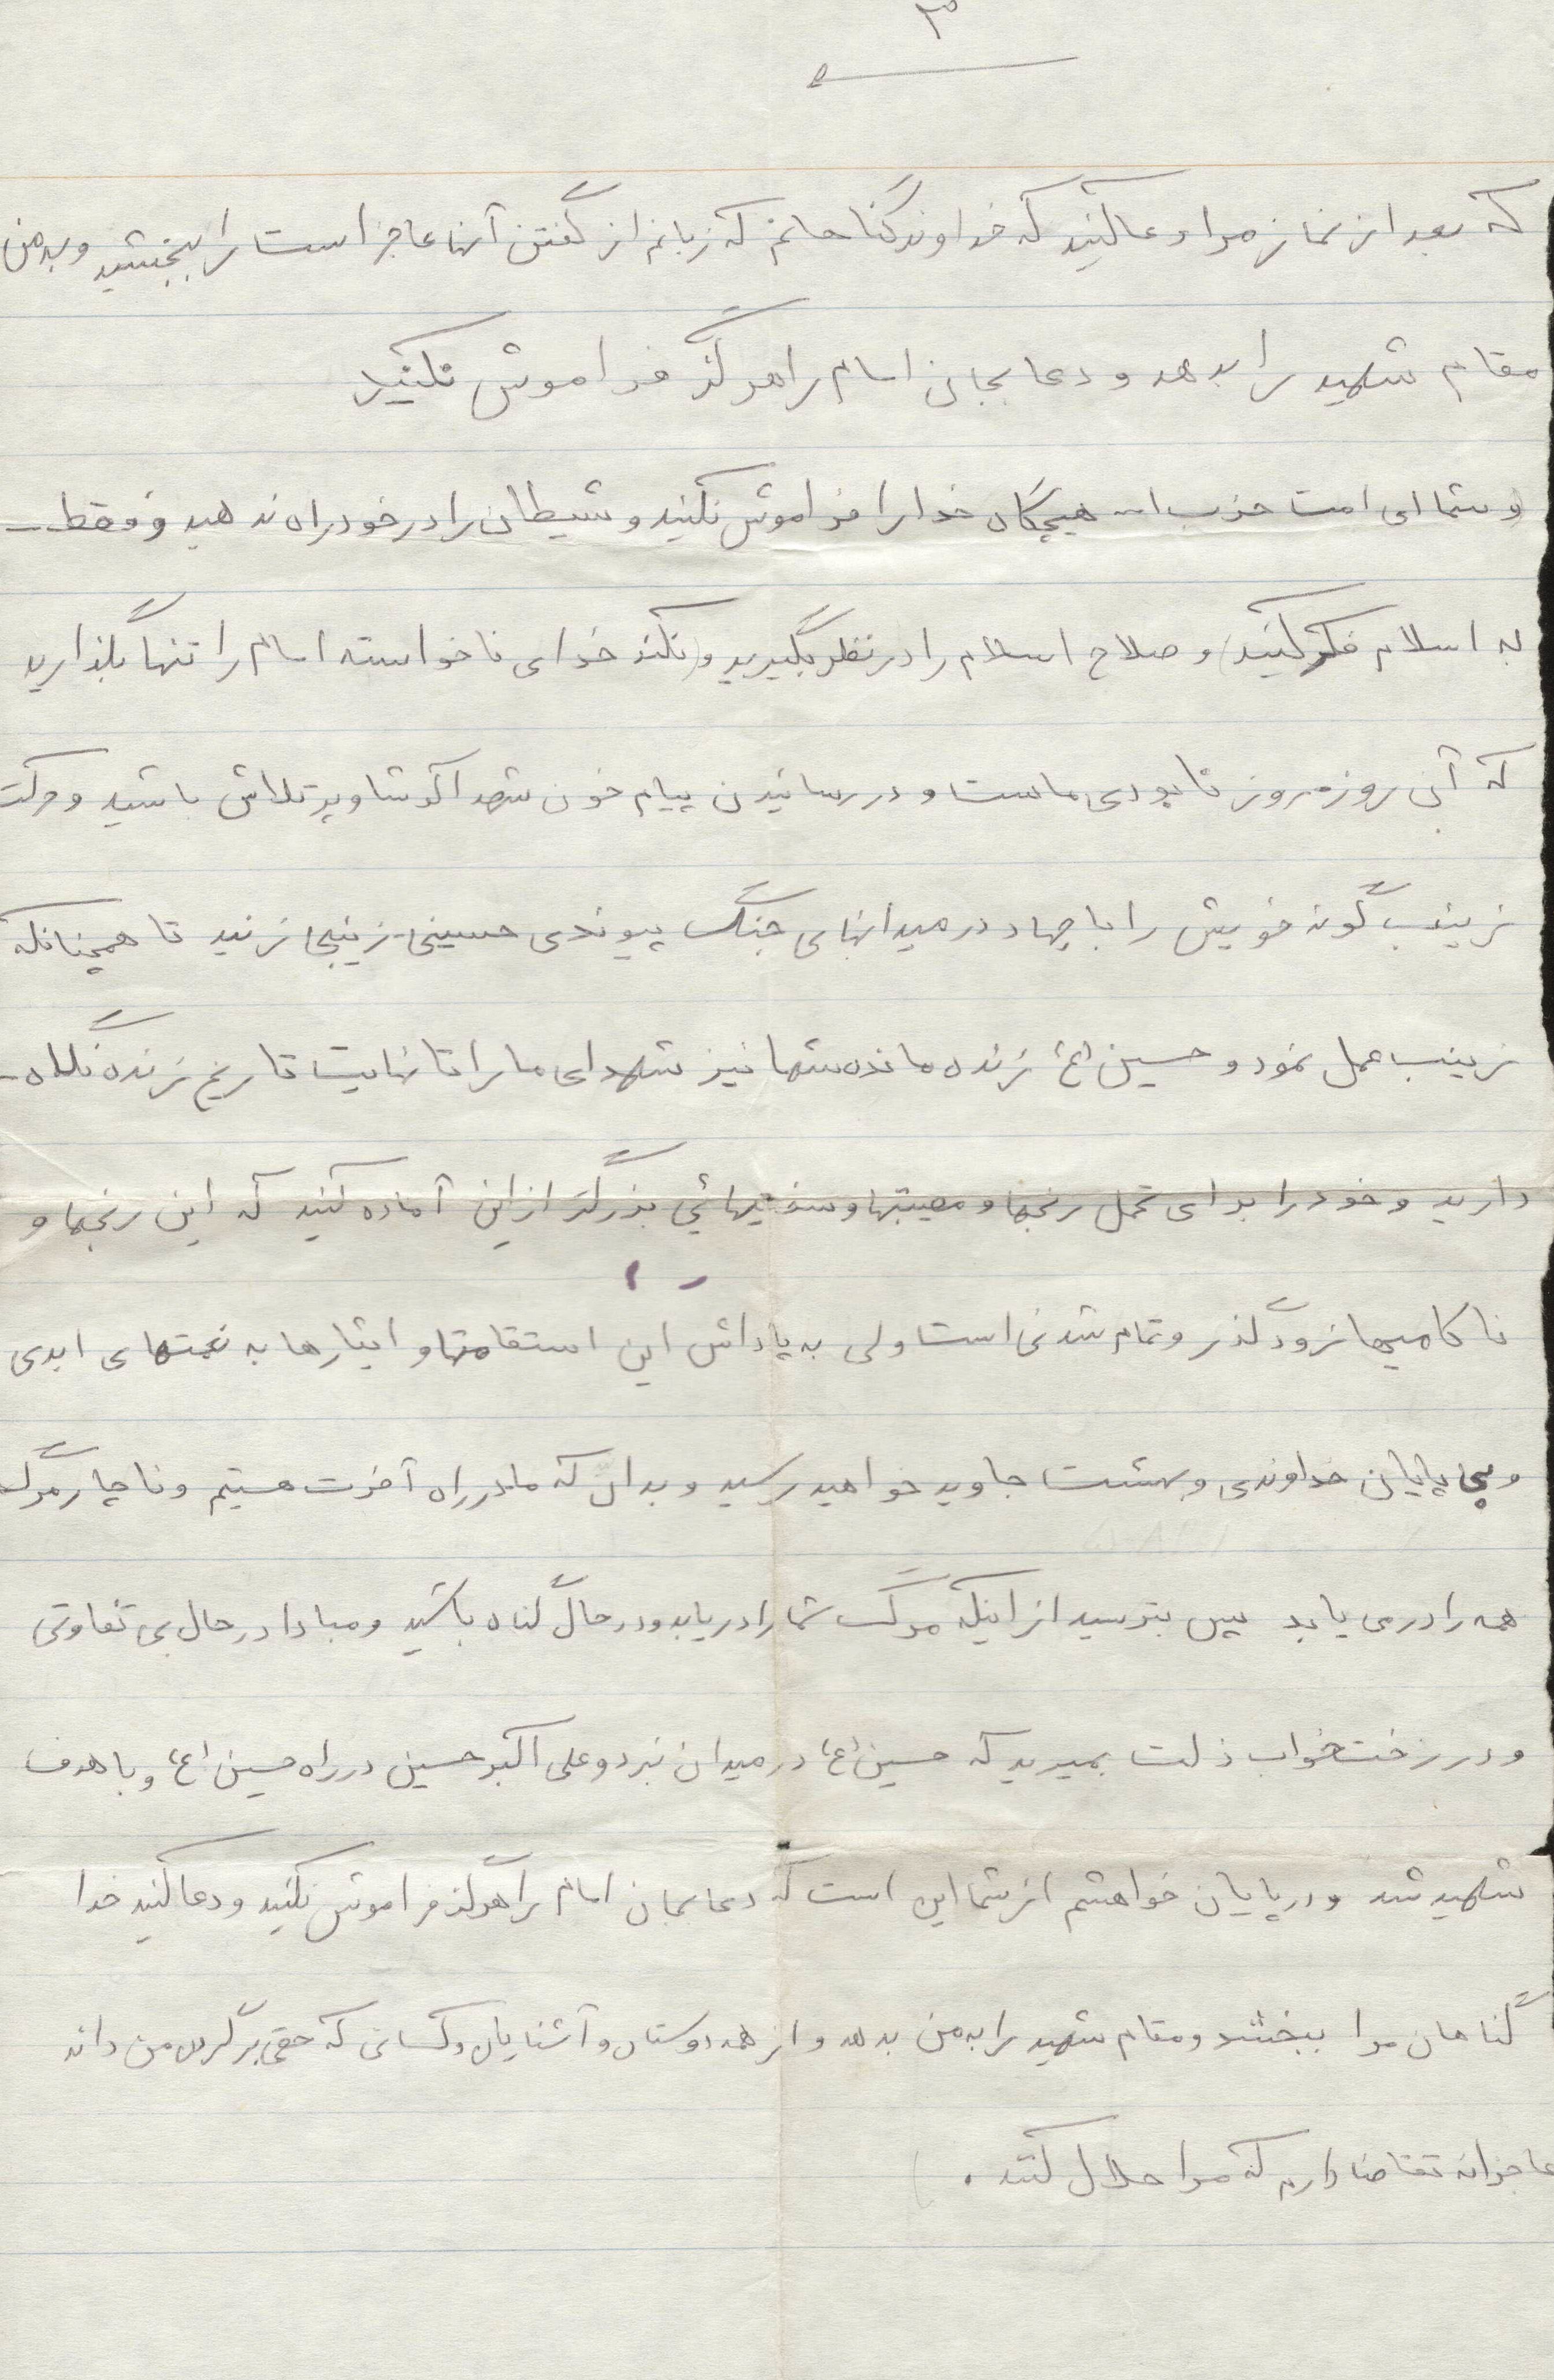 ۳
که بعد از نماز مرا دعا کنید که خداوند گناهانم که زبانم از گفتن آنها عاجز است را ببخشید و به من
مقام شهید را بدهد و دعا بجان امام را هرگز فراموش نکنید
و شما ای امت حزب الله هیچگاه خدا را فراموش نکنید و شیطان را در خود راه ندهید و فقط ـ
به اسلام فکر کنید و صلاح اسلام را در نظر بگیرید و (نکند خدای ناخواسته امام را تنها بگذارید
که آن روز روز نابودی ماست و در رسانیدن پیام خون شهدا کوشا و پر تلاش باشید و حرکت
زینب گونه خویش را با جهاد در میدانهای جنگ پیوندی حسینی زینبی زنید تا همچنانکه
زینب عمل نمود و حسین (ع) زنده مانده شما نیز شهدای ما را تا نهایت تاریخ زنده نگاه ـ
دارید و خود را برای تحمل رنجها و مصیبتها و سختیهائی بزرگتر از این آماده کنید که این رنجها و
ناکامیها زودگذر و تمام شدنی است ولی به پاداش این استقامتها و ایثارها به نعمتهای ابدی
و بی پایان خداوندی و بهشت جاوید خواهید رسید و بدان که ما در راه آخرت هستیم و ناچار مرگ
همه را در می یابد پس بترسید از اینکه مرگ شما را دریابد و در حال گناه باشید و مبادا در حال بی تفاوتی
و در رختخواب ذلت بمیرید که حسین (ع) در میدان نبرد و علی اکبر حسین در راه حسین (ع) و با هدف
شهید شد و در پایان خواهشم از شما این است که دعا بجان امام را هرگز فراموش نکنید و دعا کنید خدا
گناهان مرا ببخشد و مقام شهید را به من بدهد و از همه دوستان و آشنایان و کسانی که حقی بر گردن من دارند
عاجزانه تقاضا دارم که مرا حلال کنند.